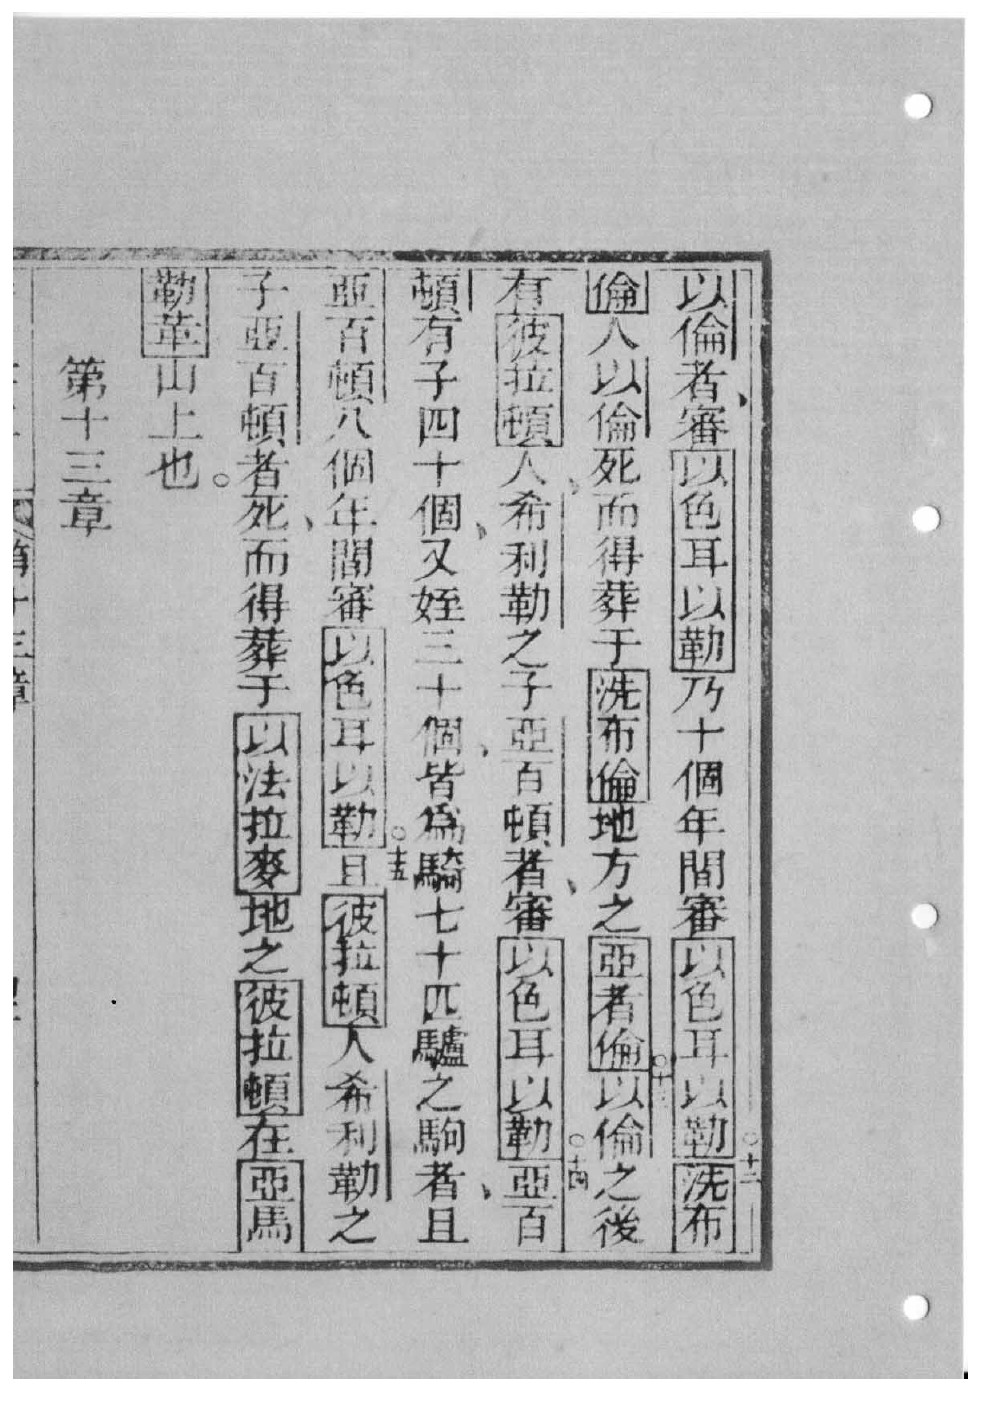 以倫者、審以色耳以勒乃十個年間審以色耳以勒○十二洗布
倫人以倫死、而得葬于洗布倫地方之亞者倫○十三以倫之後
有彼拉頓人希利勒之子亞百頓者、審以色耳以勒○十四亞百
頓有子四十個、又姪三十個、皆爲騎七十匹驢之駒者、且
亞百頓八個年間審以色耳以勒○十五且彼拉頓人希利勒之
子亞百頓者死、而得葬于以法拉麥地之彼拉頓在亞馬
勒革山上也。
第十三章
第十三章